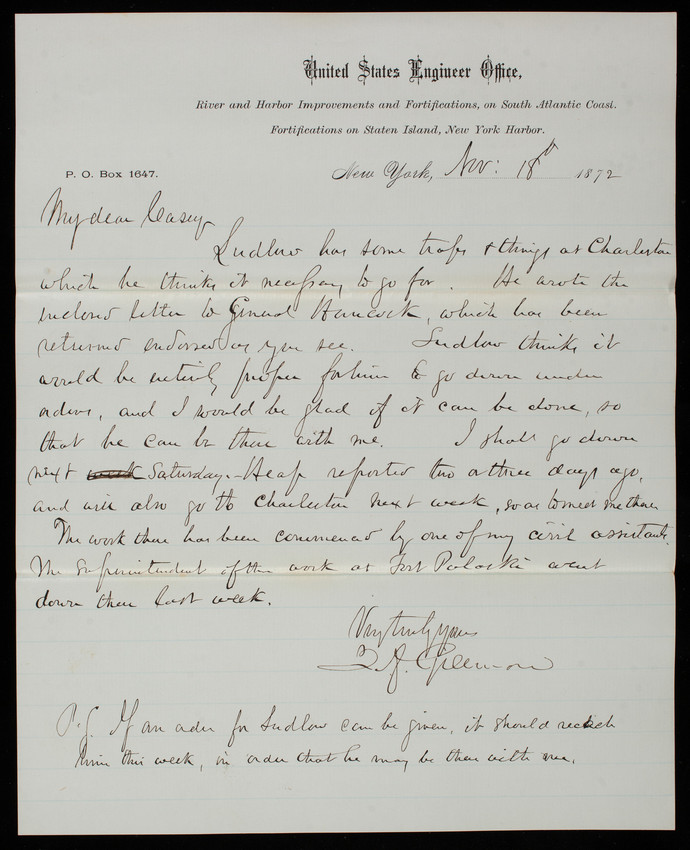 United States Engineer Office,
River and Harbor Improvements and Fortifications, on South Atlantic Coast.
Fortifications on Staten Island, New York Harbor.
P. O. Box 1647.
New York, Nov: 18th 1872
My dear Casey
Ludlow has some traps & things at Charleston
which he thinks it necessary to go for. He wrote the
inclosed letter to General Hancock, which has been
returned endorsed as you see. Ludlow thinks it
would be entirely proper for him to go down under
orders, and I would be glad if it can be done, so
that he can be there with me. I shall go down
next week Saturday.- Heap reported two or three days ago,
and will also go to Charleston next week, so as to meet me there.
The work there has been commenced by one of my civil assistants.
The Superintendent of the work at Fort Pulaski went
down there last week.
Very truly yours
Q. A. Gillmore
P.S. If an order for Ludlow can be given, it should reach
him this week, in order that he may be there with me.